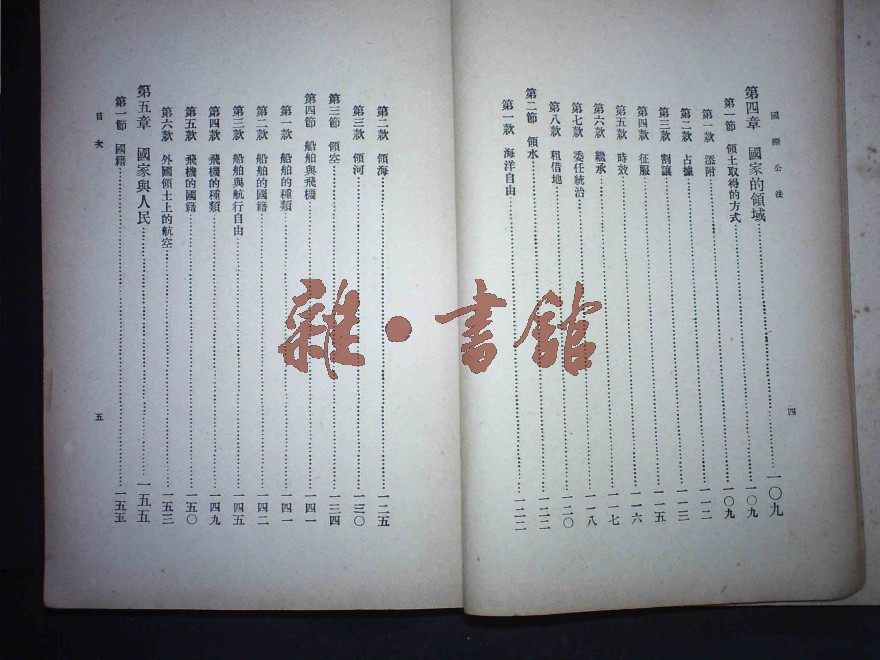 國際公法
第四章 國家的領域……一〇九
第一節 領土取得的方式……一〇九
第一款 添附……一一二
第二款 占據……一一三
第三款 割讓……一一五
第四款 征服……一一六
第五款 時效……一一七
第六款 繼承
第七款 委任統治……一一八
第八款 租借地……一二〇
第二節 領水……一二二
第一款 海洋自由……一二二
四
第二款 領海……一二五
第三款 領河……一三〇
第三節 領空……一三四
第四節 船舶與飛機……一四一
第一款 船舶的種類……一四一
第二款 船舶的國籍……一四二
第三款 船舶與航行自由……一四五
第四款 飛機的種類……一四九
第五款 飛機的國籍……一五〇
第六款 外國領土上的航空……一五三
第五章 國家與人民……一五五
第一節 國籍……一五五
目次
五
雜·書館